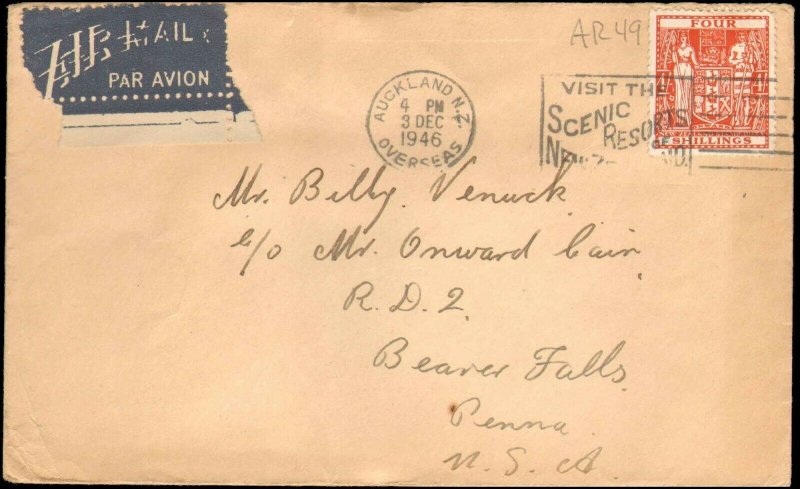 AIR MAIL
PAR AVION
AR49
FOUR
4/ 4/
SHILLINGS
AUCKLAND N.Z.
4 PM
3 DEC
1946
OVERSEAS
VISIT THE
SCENIC
RESORTS
OF
Mr. Billy Venwck
c/o Mr. Onward Cain
R.D.2.
Beaver Falls.
Penna.
U.S.A.